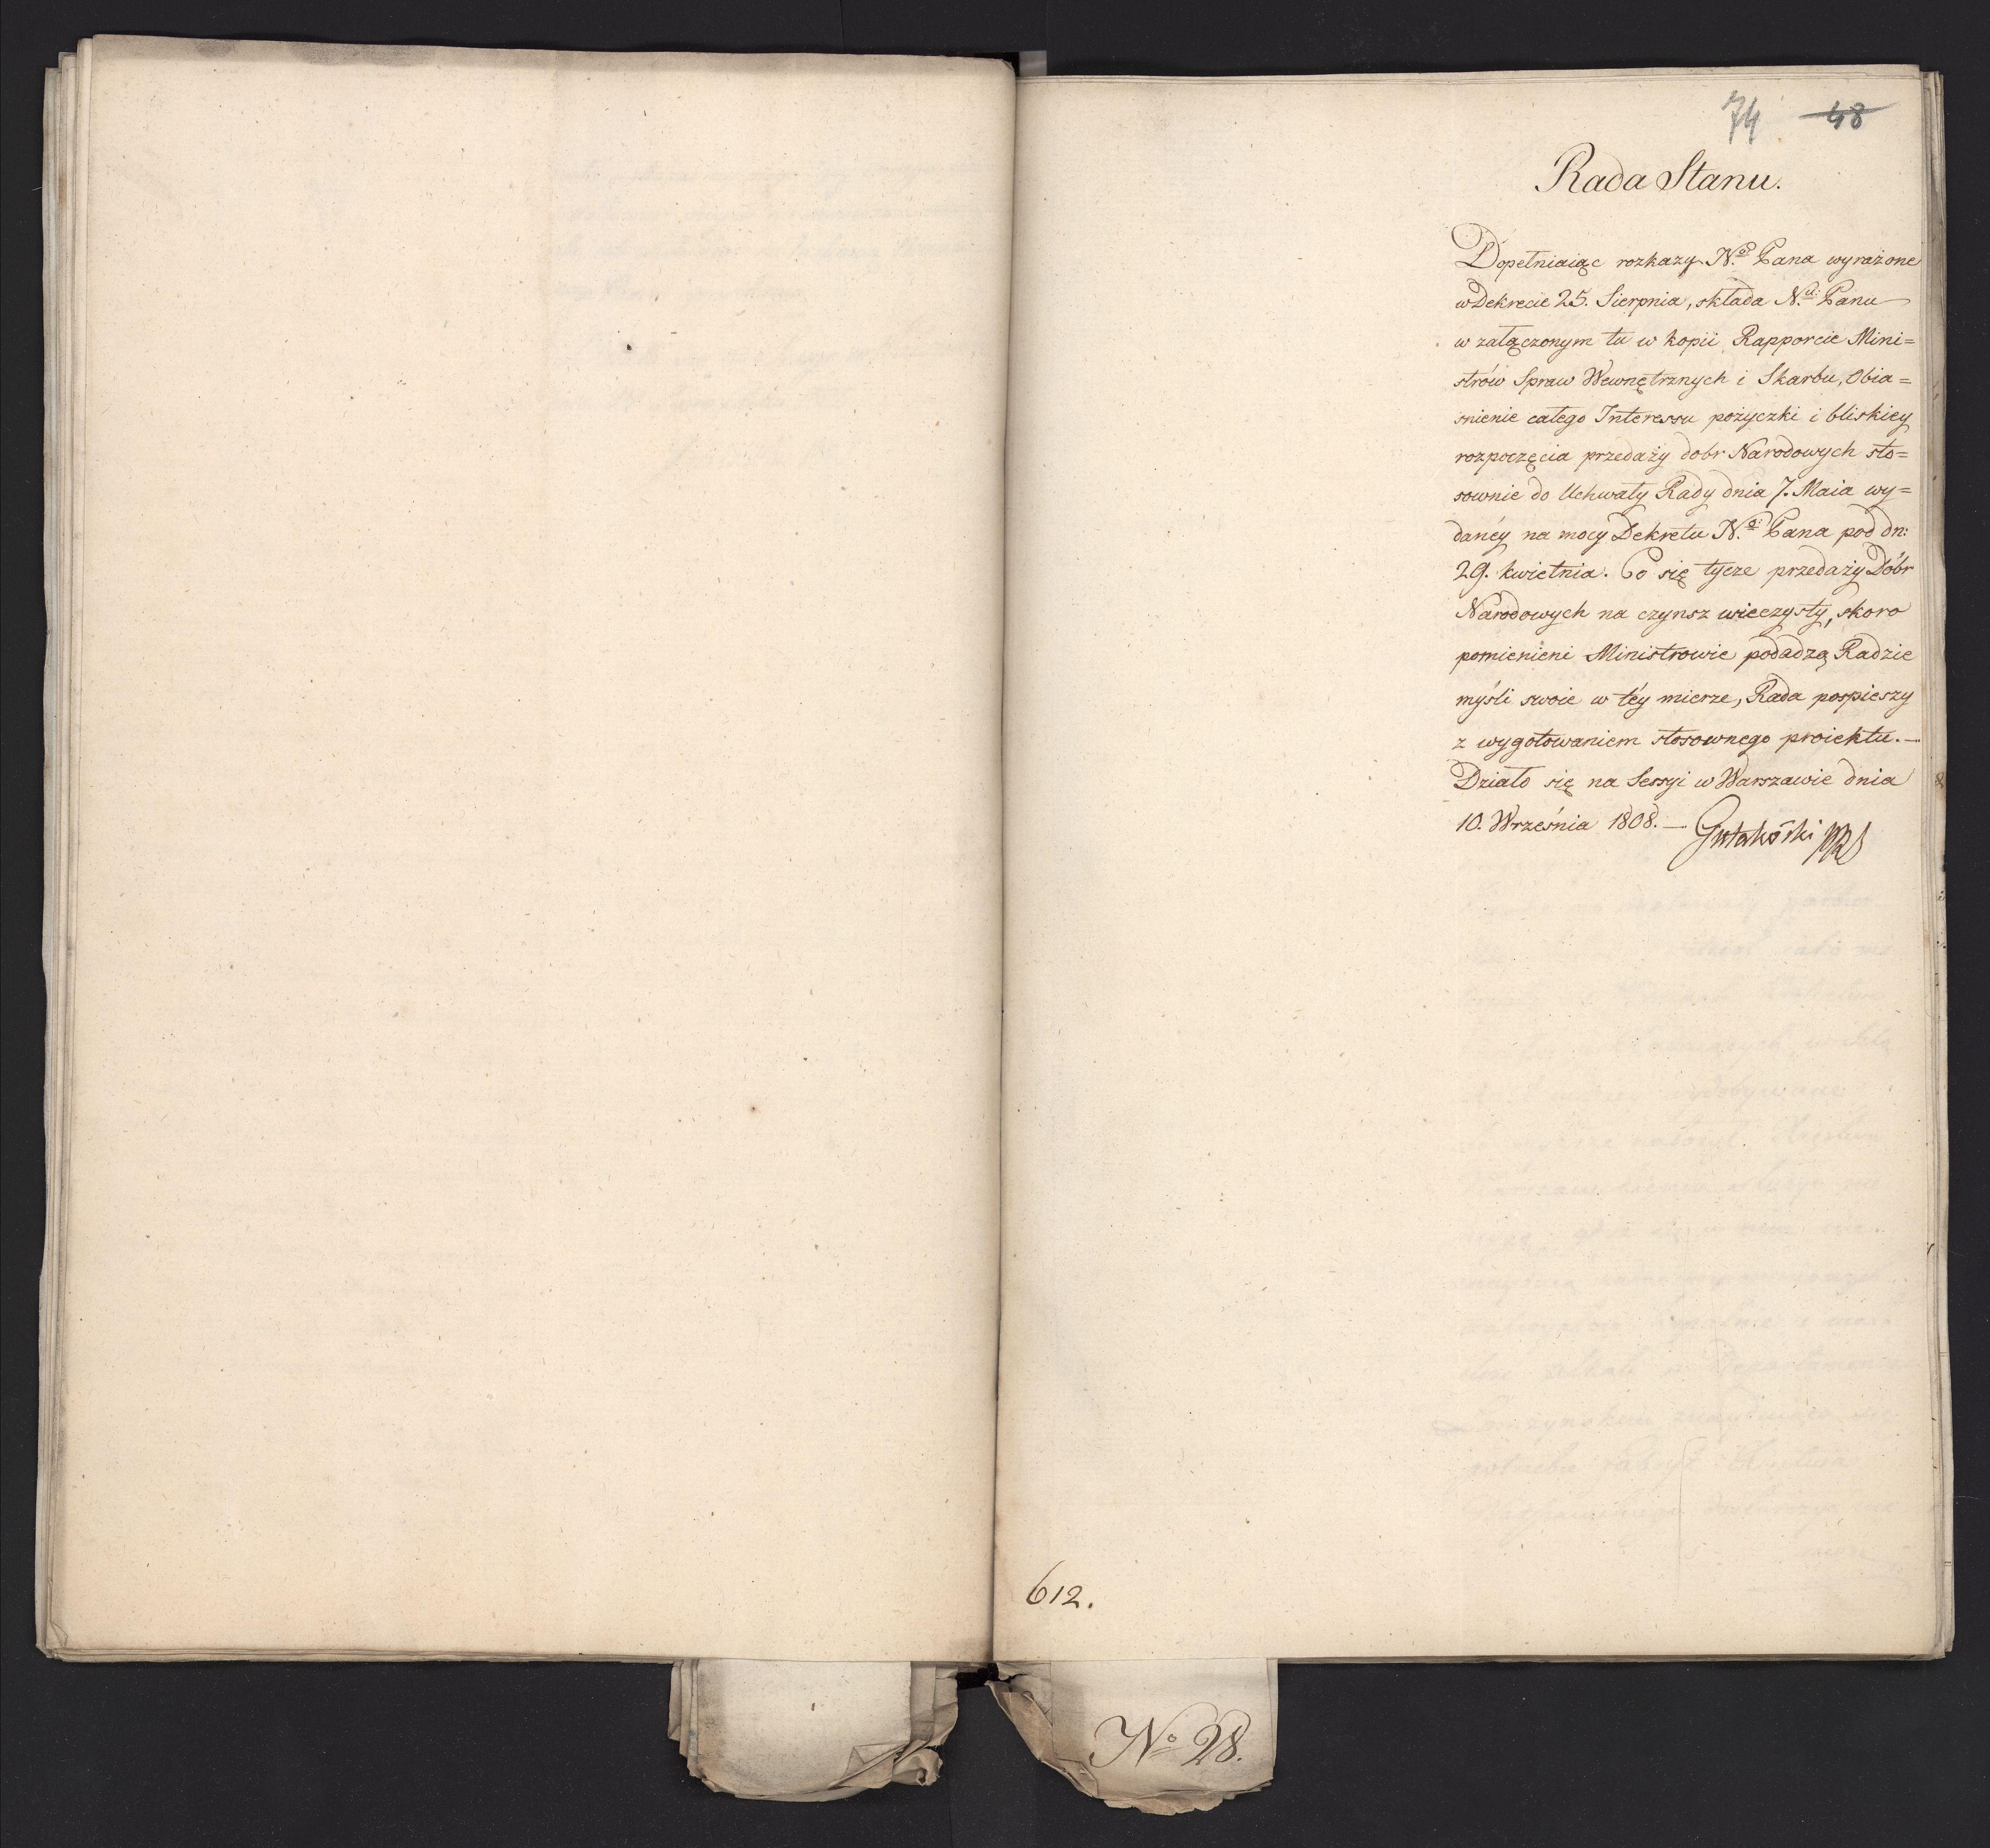 74 48
Rada Stanu.
Dopełniaiąc rozkazy N.º Pana wyrażone
w Dekrecie 25. Sierpnia, składa N.u: Panu
w załączonym tu w kopii Rapporcie Mini=
strów Spraw Wewnętrznych i Skarbu, Obia=
snienie całego Interessu pożyczki i bliskiey
rozpoczęcia przedaży dobr Narodowych sto=
sownie do Uchwały Rady dnia 7. Maia wy=
danéy na mocy Dekretu N.º: Pana pod dn:
29. kwietnia. Co się tycze przedaży Dóbr
Narodowych na czynsz wieczysty, skoro
pomienieni Ministrowie podadzą Radzie
myśli swoie w téy mierze, Rada pospieszy
z wygotowaniem stosownego proiektu.—
Działo się na Sessyi w Warszawie dnia
10. Września 1808.— Gutakowski
612.
Nº 28.